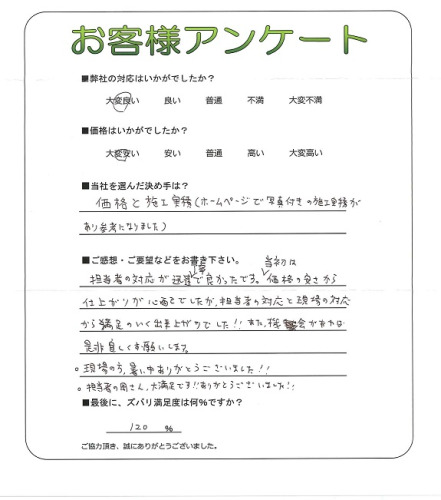 お客様アンケート
■弊社の対応はいかがでしたか?
大変良い 良い 普通 不満 大変不満
■価格はいかがでしたか?
大変安い 安い 普通 高い 大変高い
■当社を選んだ決め手は?
価格と施工実績(ホームページで写真付きの施工実績が
あり参考になりました)
■ご感想・ご要望などをお書き下さい。
当初は
担当者の対応が迅速で良かったです。価格の安さから
仕上がりが心配でしたが、担当者の対応と現場の対応
から満足のいく出来上がりでした!!また、機会があれば
是非宜しくお願いします。
○現場の方、暑い中ありがとうございました!!
○担当者の さん、大満足です!!ありがとうございました!!
■最後に、ズバリ満足度は何%ですか?
120 %
ご協力頂き、誠にありがとうございました。